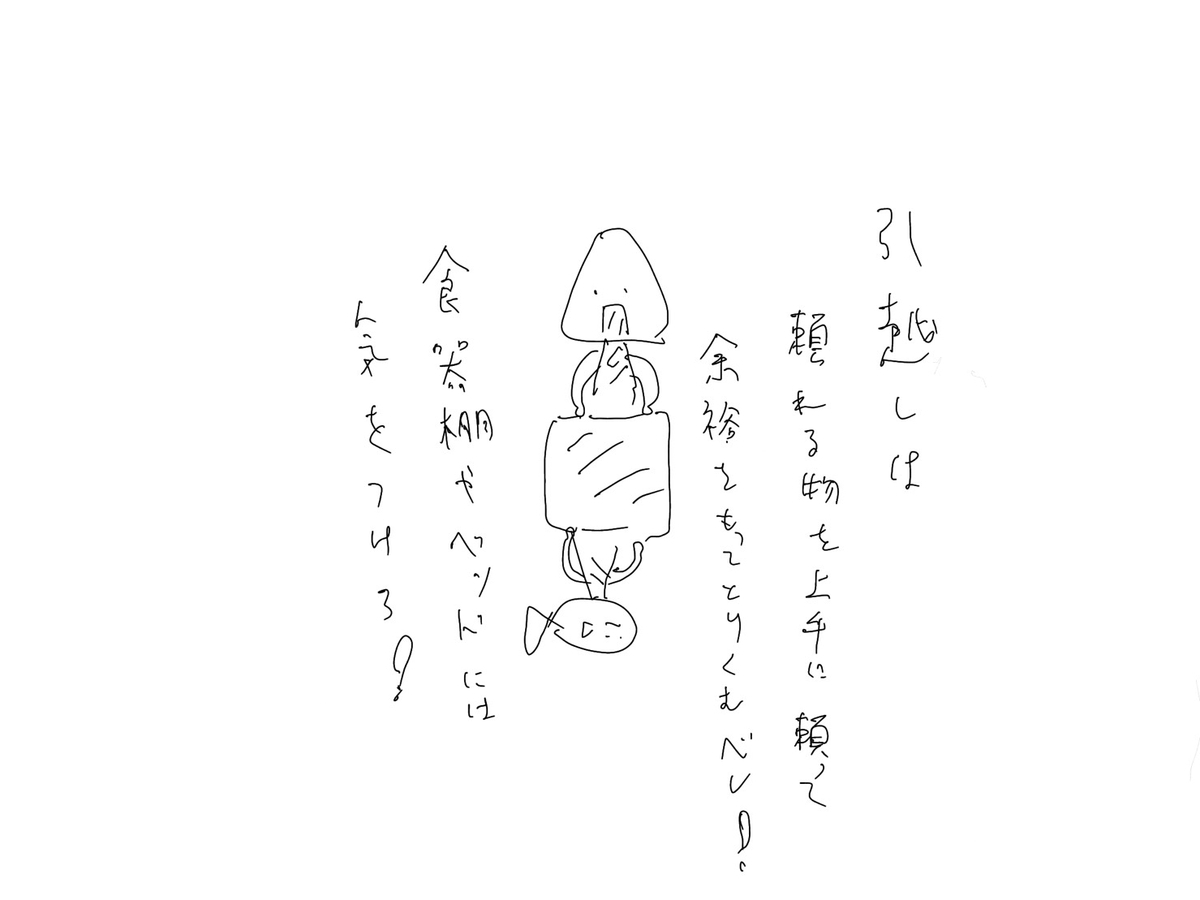 引越しは
頼れる物を上手に頼って
余裕をもってとりくむべし!
食器棚やベッドには
気をつけろ!